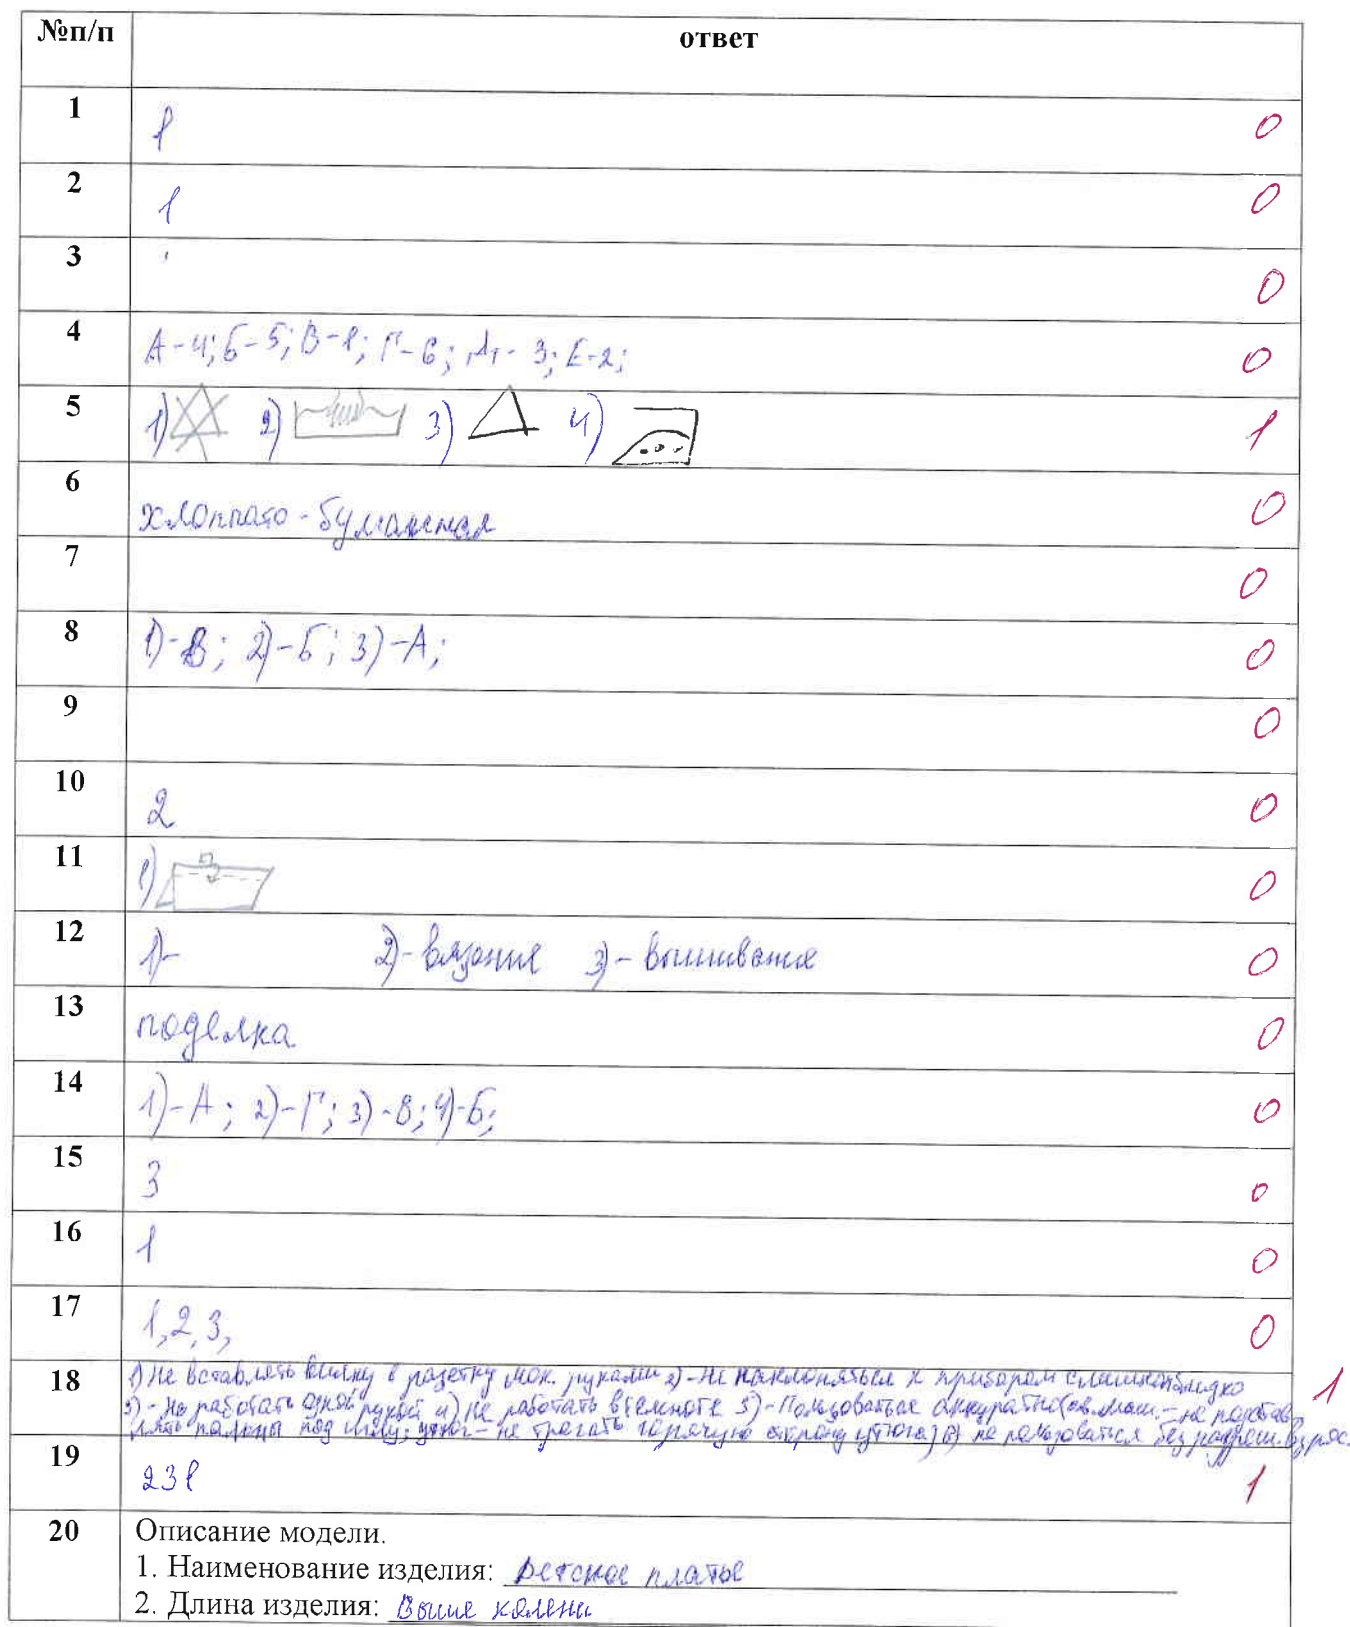 №п/п ответ
1 1 0
2 1 0
3 0
4 А-4; Б-5; В-1; Г-6; Д- 3; Е-2; 0
5 1) 2) 3) 4) 1
6 хлоппато-бумажная 0
7 0
8 1)-В; 2)-Б; 3)-А; 0
9 0
10 2 0
11 1) 0
12 1)- 2)-вязание 3)-вышивание 0
13 поделка 0
14 1)-А; 2)-Г; 3)-В; 4)-Б; 0
15 3 0
16 1 0
17 1,2,3, 0
18 1) Не вставлять вилку в розетку мок. руками 2)-Не наклоняться к приборам слишком близко 1
3)-Не работать одной рукой 4) не работать в темноте 5)-Пользоваться аккуратно(шв.маш.-не подстав
лять пальцы под иглу; утюг-не трогать горячую сторону утюга) 6) не пользоваться без разреш. взрос.
19 231 1
20 Описание модели.
1. Наименование изделия: Детское платье
2. Длина изделия: Выше колени